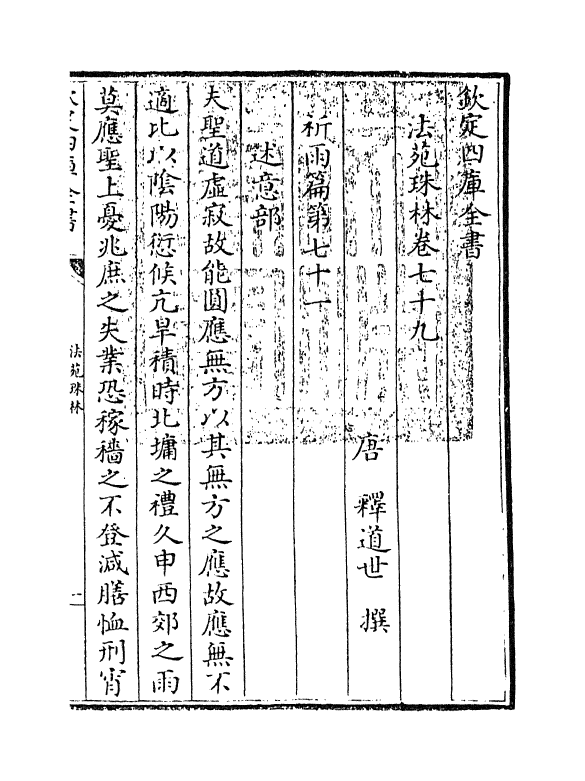 欽定四庫全書
法苑珠林卷七十九
唐 釋道世 撰
祈雨篇第七十一
述意部
夫聖道虛寂故能圓應無方以其無方之應故應無不
適比以陰陽愆候亢旱積時北墉之禮久申西郊之雨
莫應聖上憂兆庶之失業恐稼穡之不登減膳恤刑宵
法苑珠林